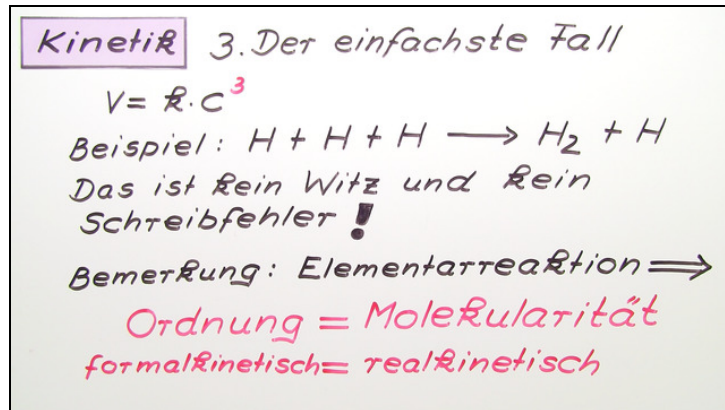 Kinetik 3. Der einfachste Fall
V = k · c³
Beispiel: H + H + H ⟶ H₂ + H
Das ist kein Witz und kein
Schreibfehler!
Bemerkung: Elementarreaktion ⟹
Ordnung = Molekularität
formalkinetisch = realkinetisch